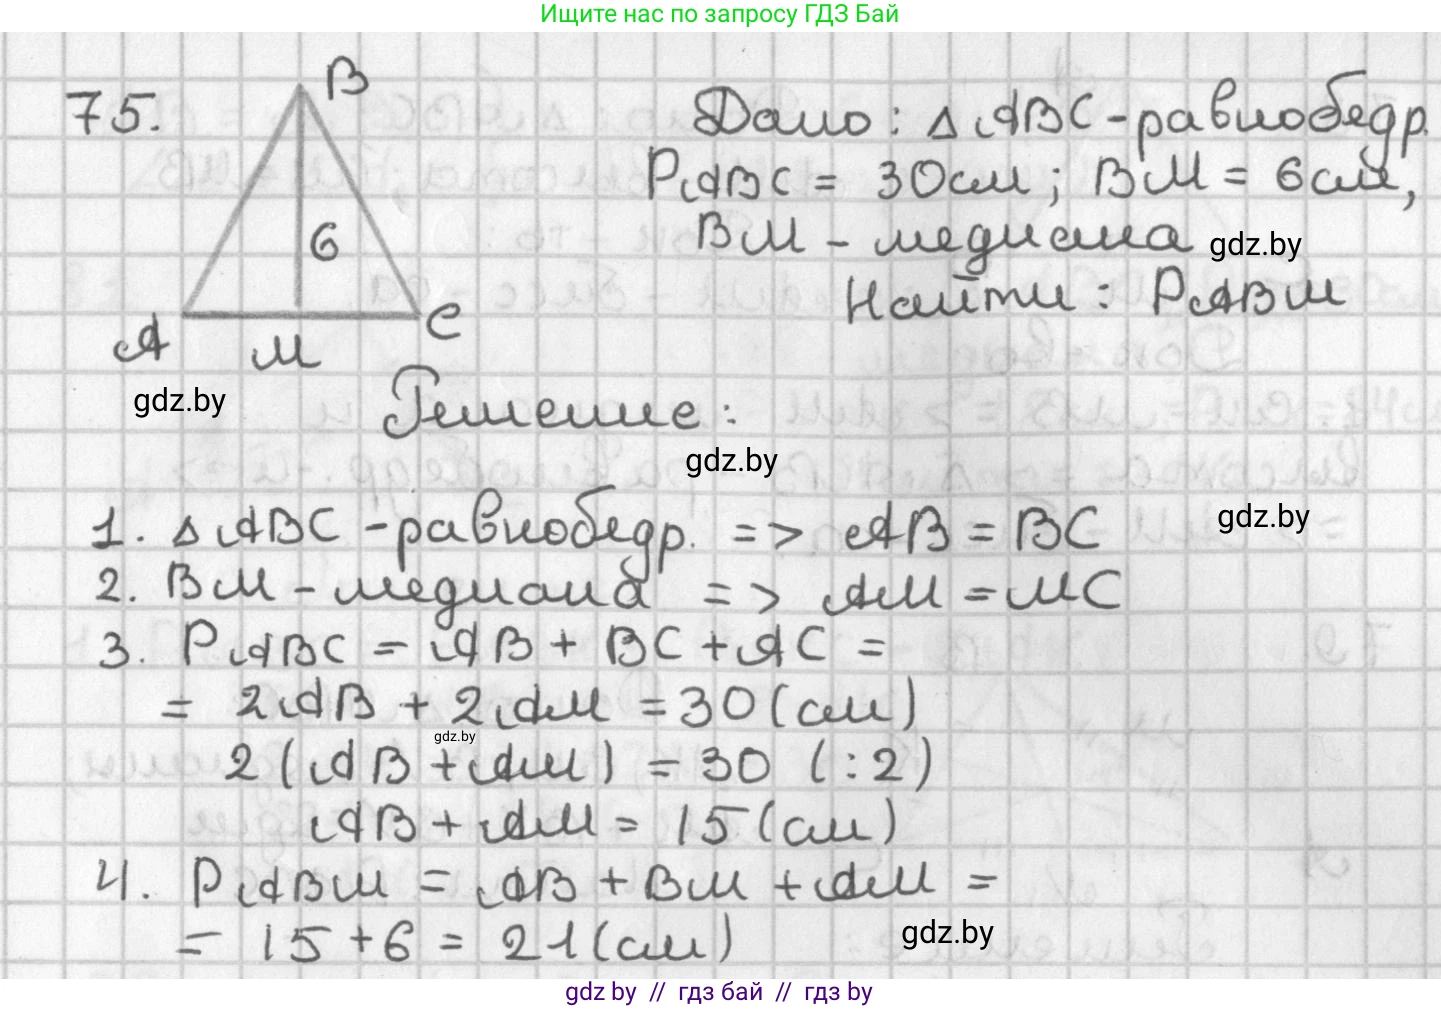 Ищите нас по запросу ГДЗ Бай
75.
B
6
A
M
C
Дано: △ABC - равнобедр.
PABC = 30см; BM = 6см,
BM - медиана
gdz.by
Найти: PABM
gdz.by
Решение:
gdz.by
1. △ABC - равнобедр. => AB = BC
gdz.by
2. BM - медиана => AM = MC
3. PABC = AB + BC + AC =
= 2AB + 2AM = 30 (см)
gdz.by
2(AB + AM) = 30 (:2)
AB + AM = 15 (см)
4. PABM = AB + BM + AM =
= 15 + 6 = 21 (см)
gdz.by
gdz by // гдз бай // гдз by